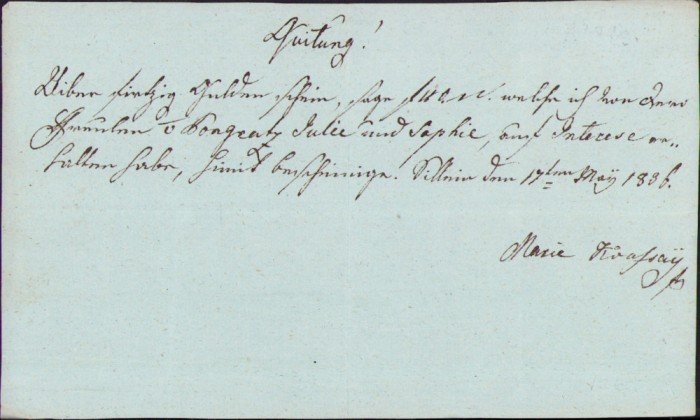 Quitung!
Uiber vierzig Gulden schein, sage f welche ich von
Freulen v Pongratz Julie und Sophie, auf Interese er-
halten habe, hiemit bescheinige. Sillein den 17ten May 1836.
Marie